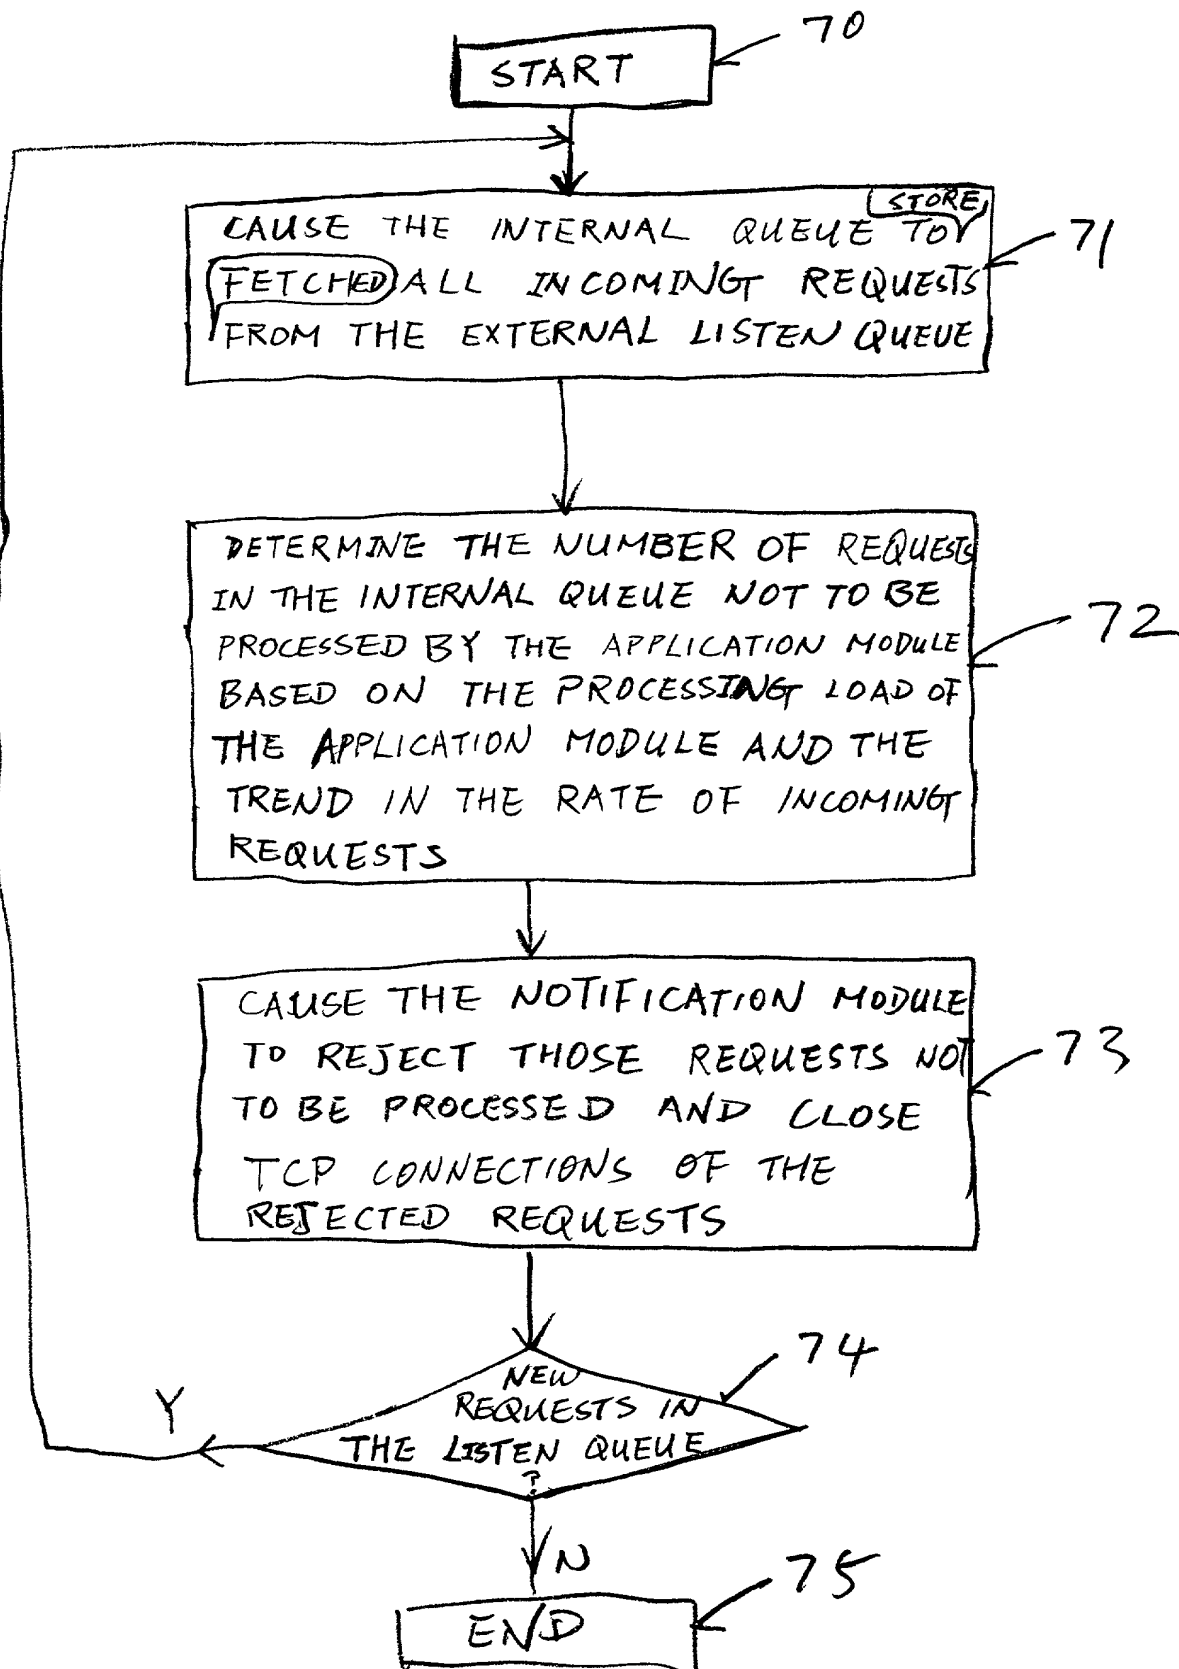 START
70
STORE
CAUSE THE INTERNAL QUEUE TO
71
FETCHED ALL INCOMING REQUESTS
FROM THE EXTERNAL LISTEN QUEUE
DETERMINE THE NUMBER OF REQUESTS
IN THE INTERNAL QUEUE NOT TO BE
72
PROCESSED BY THE APPLICATION MODULE
BASED ON THE PROCESSING LOAD OF
THE APPLICATION MODULE AND THE
TREND IN THE RATE OF INCOMING
REQUESTS
CAUSE THE NOTIFICATION MODULE
TO REJECT THOSE REQUESTS NOT
73
TO BE PROCESSED AND CLOSE
TCP CONNECTIONS OF THE
REJECTED REQUESTS
74
NEW
REQUESTS IN
THE LISTEN QUEUE
?
Y
N
75
END